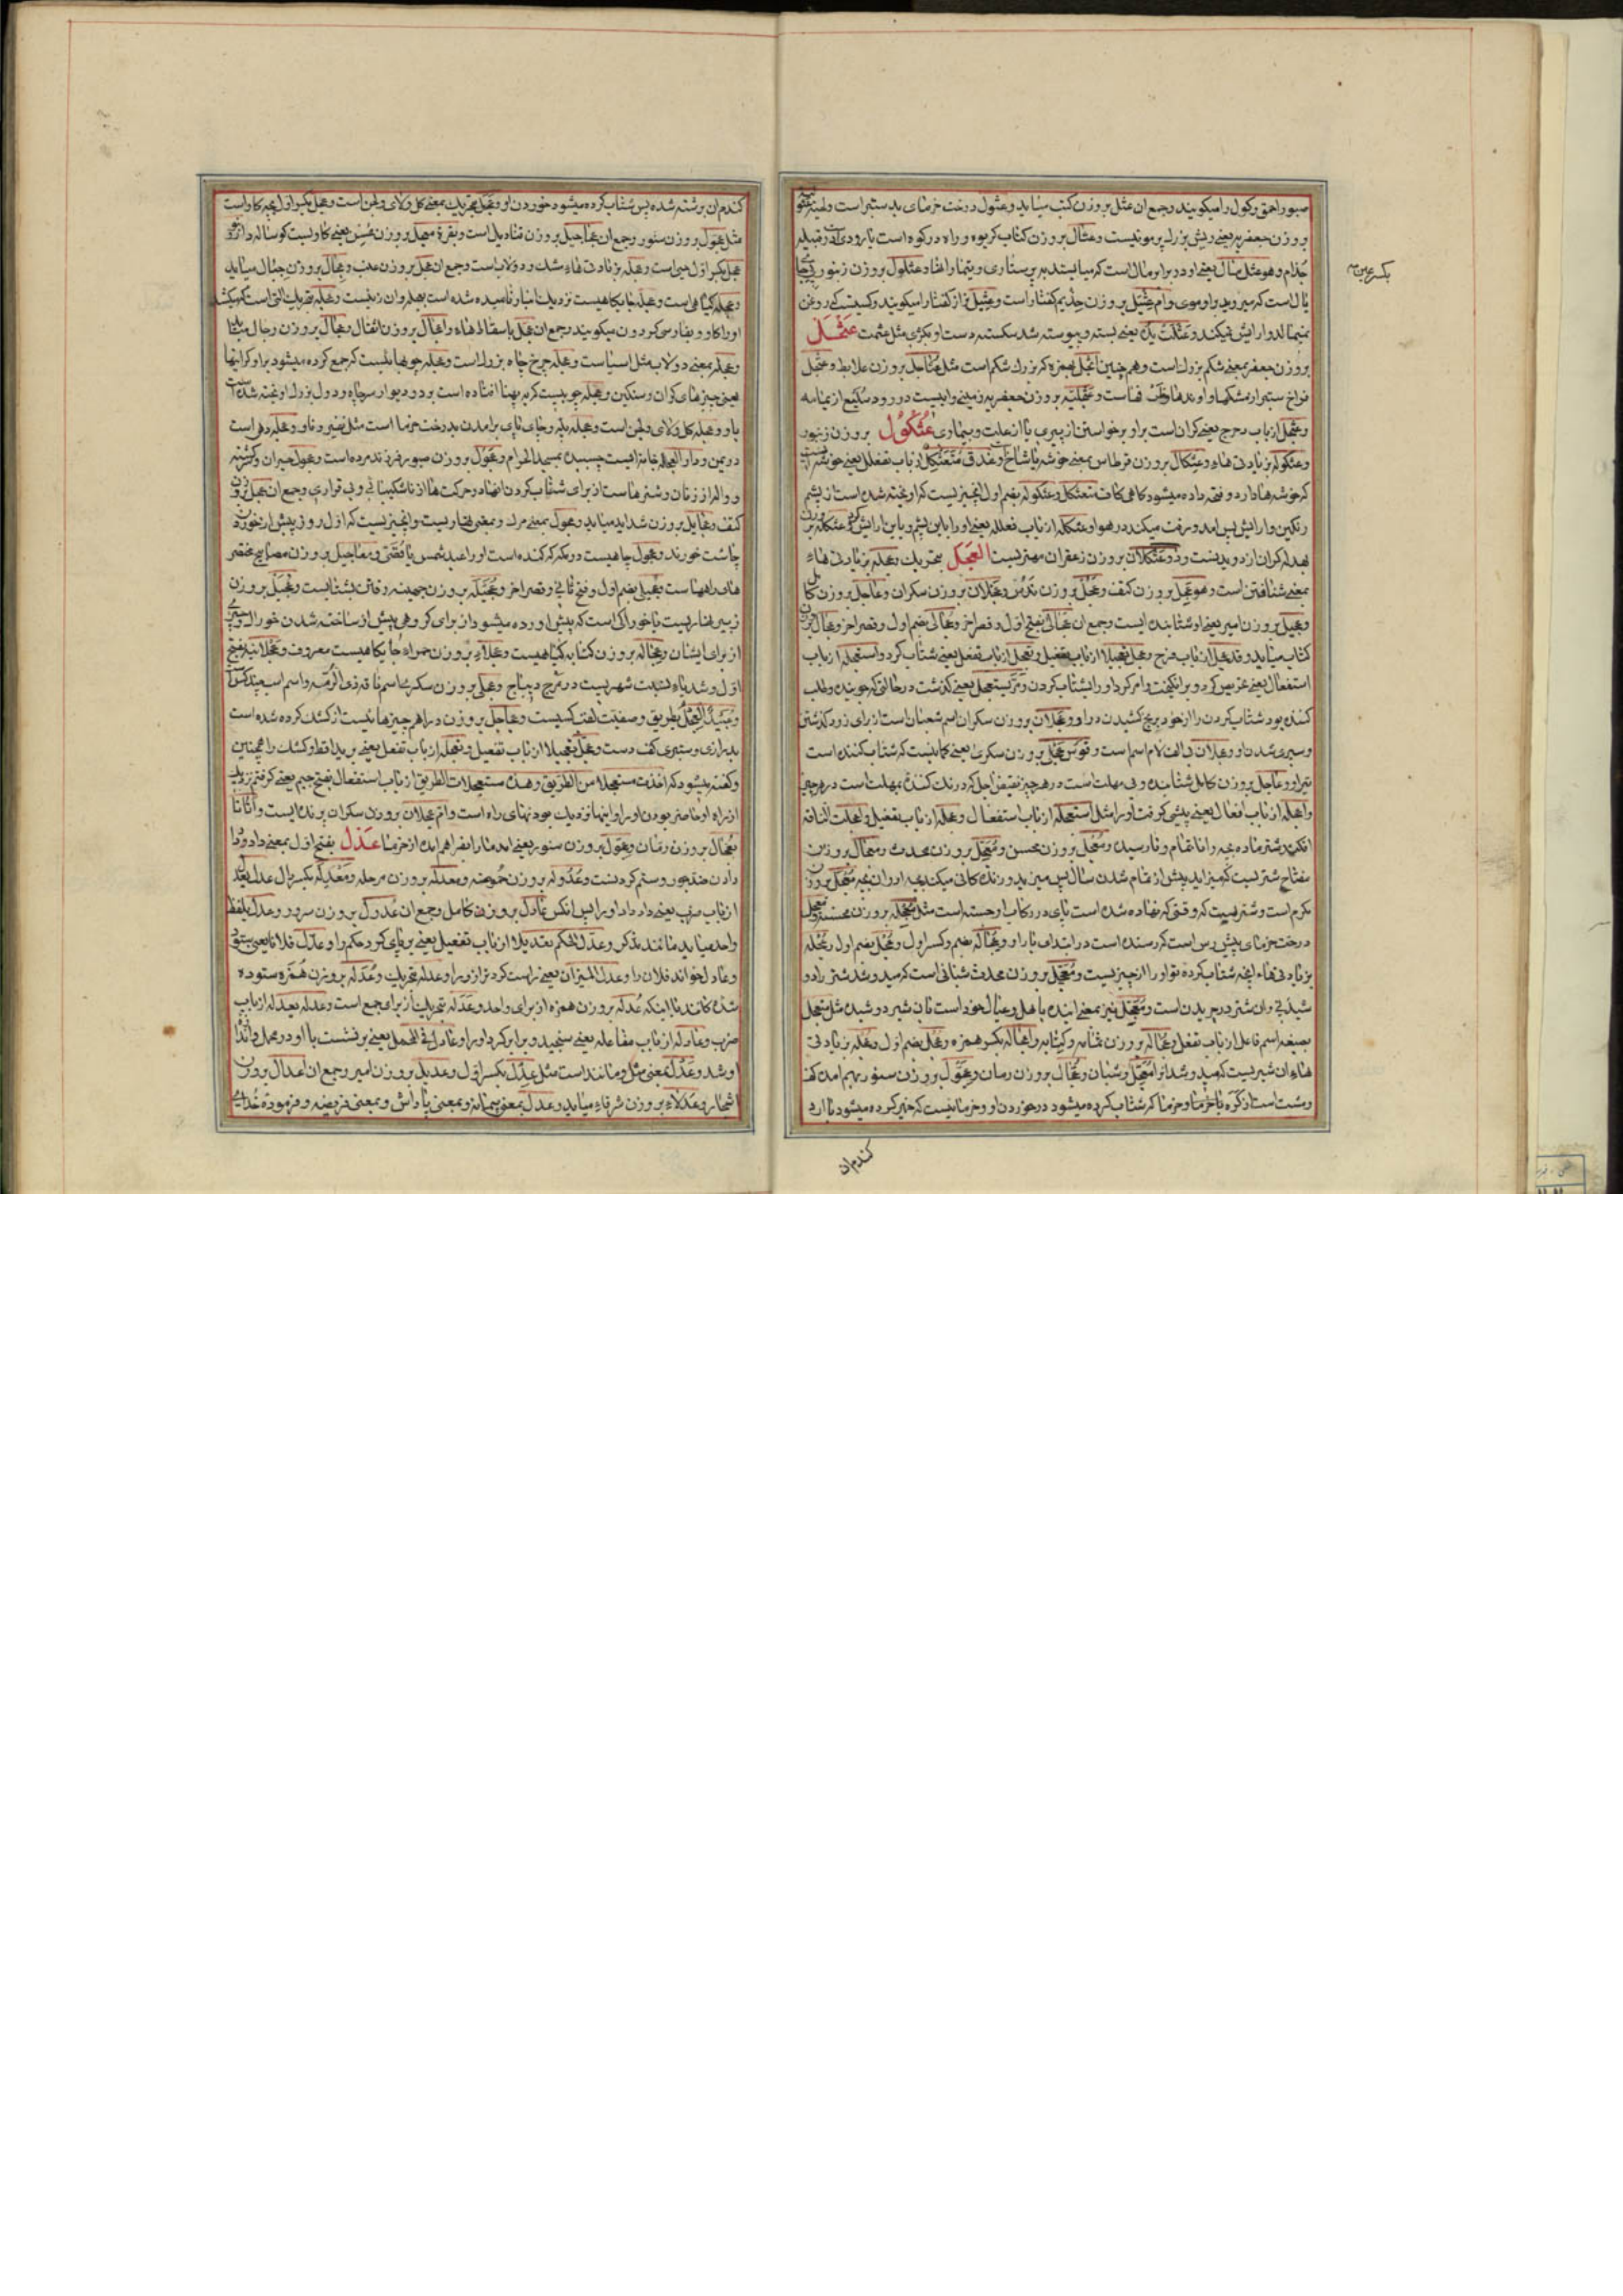 صبور احمق و کول را میکویند و جمع ان عثل بر وزن کتب میاید و عثول درخت خرمای بد ستبر است و لحیه
بر وزن جعفر یعنی ریش بزرک پر موئیست و عثال بر وزن کتاب کریوه و راه در کوه است یا رودی
جذام و هو عثل مال یعنی او در برابر مال است که میایستد بپرستاری و عثلول بر وزن زنبور
یال است که میروید بر او موی و ام عثیل بر وزن حذیم کفتار است و عثیل نر از کفتار را میکویند و کسیست که روغن
نمیمالد و ارایش نمیکند و عثلت یده یعنی بسته و پیوسته شد شکسته دست او بکژی مثل عثمت عثجل
بر وزن جعفر بمعنی شکم بزرک است و همچنین اثجل بهمزه که بزرک شکم است مثل عثاجل بر وزن علابط و عثجل
فراخ ستبر از مشکها و اوندها
و عثجل از باب دحرج یعنی کران است بر او برخواستن از پیری یا از علت و بیماری عثکول بر وزن زنبور
و عثکوله بزیادتی هاء و عثکال بر وزن قرطاس بمعنی خوشه یا شاخ و عذق متعثکل از باب تفعلل یعنی خوشه
که خوشه‌ها دارد و فتحه داده میشود کاهی کاف متعثکل و عثکوله بضم اول انچیزیست که اویخته شده است از پشم
رنکین و ارایش پس امد و رفت میکند در هوا و عثکله از باب فعلله یعنی
و ذو عثکلان بر وزن زعفران مهتریست العجل بتحریک و عجله بزیادتی هاء
بمعنی شتافتن است و هو عجل بر وزن کتف و عجل بر وزن ندس و عجلان بر وزن سکران و عاجل بر وزن
و عجیل بر وزن امیر یعنی او شتابنده ایست و جمع ان عجالی بفتح اول و قصر اخر و عجالی بضم اول و قصر اخر و عجال بر وزن
کتاب میاید و قد عجل از باب فرح و عجل تعجیلا از باب تفعیل و تعجل از باب تفعل یعنی شتاب کرد و استعجله از باب
استفعال یعنی
کننده بود شتاب کردن را از خود و عجلان بر وزن سکران اسم شعبان است از برای زود کذشتن
و سپری شدن او و عجلان بی الف و لام اسم است و قوس عجلی بر وزن سکری یعنی کمانیست که شتاب کننده است
تیر او و عاجل بر وزن کامل شتابنده و بی مهلت است در هر چیز نقیض اجل که درنک کننده بمهلت است
و اعجله از باب افعال یعنی پیشی کرفت او را مثل استعجله از باب استفعال و عجله از باب تفعیل و اعجلت الناقة
افکند شتر ماده بچه را ناتمام و نارسیده و معجل بر وزن محسن و معجل بر وزن محدث و معجال بر وزن
مفتاح شتریست که میزاید پیش از تمام شدن سال پس میزید و زندکانی میکند بچه او و ان بچه معجل بر وزن
مکرم است و شتریست که وقتی که نهاده شده است پای در رکاب او جسته است مثل معجله بر وزن محسنه
درخت خرمای پیش رس است که رسنده است در ابتدای بار او و عجاله بضم و کسر اول و عجل بضم اول و عجله
بزیادتی هاء انچه شتاب کرده تو او را از چیزیست و معجل بر وزن محدث شبانی است که میدوشد شتر را دو
شیدنی و ان شتر در چریدن است و متعجل نیز بمعنی اینده باهل و عیال خود است بان شیر دوشیده مثل متعجل
بصیغه اسم فاعل از باب تفعل و عجاله بر وزن و اعجاله بکسر همزه و عجل بضم اول و عجله بزیادتی
هاء ان شیریست که میدوشد انرا معجل و شبان و عجال بر وزن رمان و عجول بر وزن سنور بهم امده کف
و مشت است از کره یا خرما و خرما که شتاب کرده میشود در خوردن او و خرمائیست که خمیر کرده میشود با ارد
کندم ان
بکسر عین
کندم ان برشته شده پس شتاب کرده میشود خوردن او و عجل بتحریک بمعنی کل و لای و لجن است و عجل بکسر اول بچه کاو است
مثل عجول بر وزن سنور و جمع ان عجاجیل بر وزن قنادیل است و بقرة معجل بر وزن محسن یعنی کاویست کوساله دار
عجل بکسر اول حیی است و عجله بزیادتی هاء مشک و دولاب است و جمع ان عجل بر وزن عنب و عجال بر وزن جبال میاید
و عجله کیاهی است و عجله جایکاهیست نزدیک انبار نامیده شده است بعجله و ان زنیست و عجله بتحریک التی است که میکشد
او را کاو و بفارسی کردون میکویند و جمع ان عجل باسقاط هاء و اعجال بر وزن انفال و عجال بر وزن رجال میاید
و عجله بمعنی دولاب مثل اسیاست و عجله چرخ چاه بزرک است و عجله چوبهائیست که جمع کرده میشود بر او کرانیها
یعنی چیزهای کران و سنکین و عجله چوبیست که بپهنا افتاده است بر دو دیوار سر چاه و دول بزرک اویخته شده است
باو و عجله کل و لای و لجن است و عجله پله و جای پای برامدن بدرخت خرما است مثل نقیر و ناو و عجله دهی است
در یمن و دار العجله خانه ایست چسبیده بمسجد الحرام و عجول بر وزن صبور فرزند مرده است و عجول حیران و کشته
و واله از زنان و شترها است از برای شتاب کردن انها در حرکت‌ها از ناشکیبائی و بی قراری و جمع ان عجل بر وزن
کتب و عجایل بر وزن شداید میاید و عجول بمعنی مرک و بمعنی نهاریست و انچیزیست که اول روز پیش از خوردن
چاشت خورند و عجول چاهیست در مکه که کنده است او را عبد شمس یا قصی و معاجیل بر وزن مصابیح مختصر
های راهها است و عجیلی بضم اول و فتح ثانی و قصر اخر و عجیله بر وزن جهینه رفتن بشتابیست و عجیل بر وزن
زبیر نهاریست یا خوراکی است که پیش اورده میشود از برای کروهی پیش از ساخته شدن خوراک و سیری
از برای ایشان و عجاله بر وزن کنایه کیاهیست و عجلاء بر وزن حمراء جایکاهیست معروف و عجلانیه بفتح
اول و شد یاء نسبت شهریست در مرج دیباج و عجلی بر وزن سکری اسم ناقه ذی الرمه و اسم اسب چند کس است
لقب کسیست و عجاجل بر وزن دراهم چیزهائیست از کشک کرده شده است
بدرازی و ستبری کف دست و عجل تعجیلا از باب تفعیل و تعجله از باب تفعل یعنی برید اقط و کشک را همچنین
و کفته میشود که اخذت مستعجلا من الطریق و هذه مستعجلات الطریق از باب استفعال بفتح جیم یعنی کرفتم نزدیک
از راه او حاضر بودن او را و اینها نزدیک بودنهای راه است و ام عجلان بر وزن سکران پرنده ایست و اتانا
بعجال بر وزن رمان و عجول بر وزن سنور یعنی امد ما را بفراهم امده از خرما عدل بفتح اول بمعنی داد و داد
دادن ضد جور و ستم کردنست و عدوله بر وزن حموضه و معدله بر وزن مرحله و معدله بکسر دال عدل یعدل
از باب ضرب یعنی داد داد او را پس انکس عادل بر وزن کامل و جمع ان عدول بر وزن سرور و عدل بلفظ
واحد میاید مانند مذکر و عدل الحکم تعدیلا از باب تفعیل یعنی برپای کرد حکم را و عدل فلانا یعنی
و عادل خواند فلان را و عدل المیزان یعنی راست کرد ترازو را و عدله بتحریک و عدله بر وزن همزه ستوده
شده کانند یا اینکه عدله بر وزن همزه از برای واحد و عدله بتحریک از برای جمع است و عدله یعدله از باب
ضرب و عادله از باب مفاعله یعنی سنجید و برابر کرد او را و عادله فی المحمل یعنی برنشست با او در محمل و انداز
او شد و عدل بمعنی مثل و مانند است مثل عدل بکسر اول و عدیل بر وزن امیر و جمع ان اعدال بر وزن
اشجار و عدلاء بر وزن شرفاء میاید و عدل بمعنی پیمانه و بمعنی پاداش و بمعنی فریضه و فرموده خدای